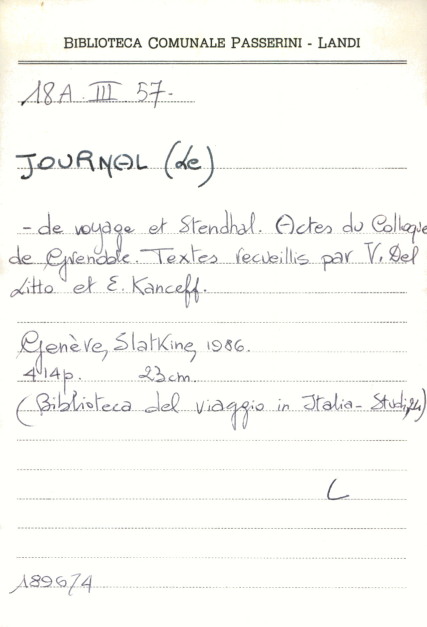 BIBLIOTECA COMUNALE PASSERINI - LANDI
18A III 57-
JOURNAL (Le)
- de voyage et Stendhal. Actes du Colloque
de Grenoble. Textes recueillis par V. Del
Litto et E. Kanceff.
Genève, Slatkine, 1986.
414p. 23cm.
(Biblioteca del viaggio in Italia - Studi, 24)
L
189674